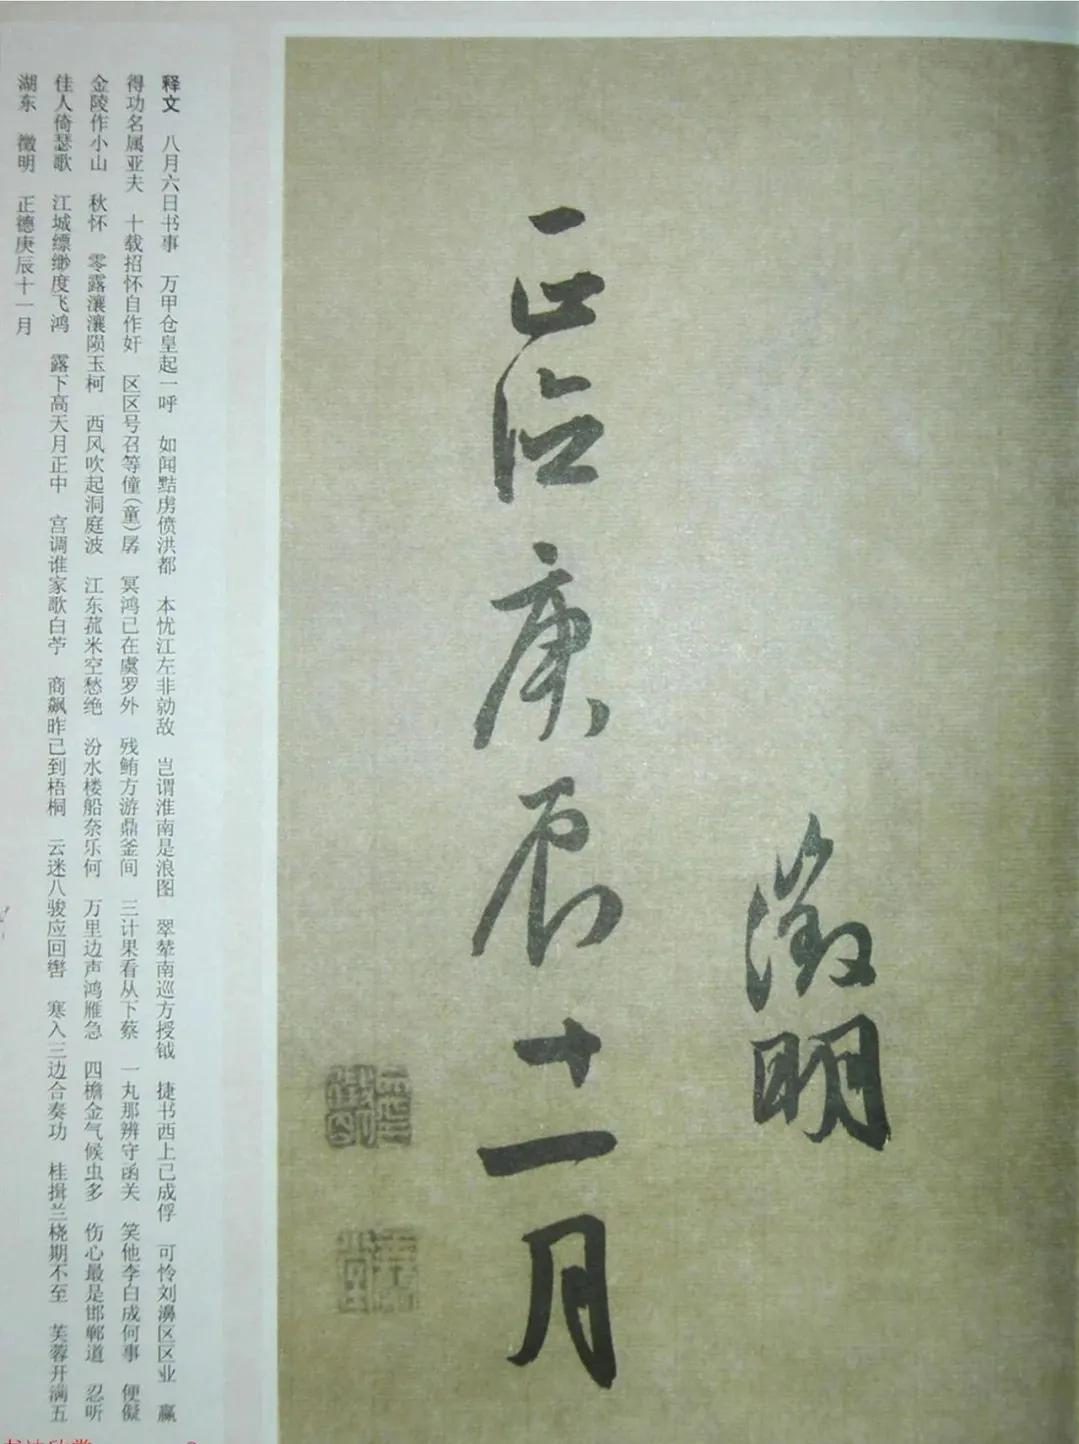 徵明
正德庚辰十一月
释文 八月六日书事 万甲仓皇起一呼 如闻黠虏偾洪都 本忧江左非勍敌 岂谓淮南是浪图 翠辇南巡方授钺 捷书西上已成俘 可怜刘濞区区业 赢
得功名属亚夫 十载招怀自作奸 区区号召等僮(童)孱 冥鸿已在虞罗外 残鲔方游鼎釜间 三计果看从下蔡 一丸那辨守函关 笑他李白成何事 便儗
金陵作小山 秋怀 零露瀼瀼陨玉柯 西风吹起洞庭波 江东菰米空愁绝 汾水楼船奈乐何 万里边声鸿雁急 四檐金气候虫多 伤心最是邯郸道 忍听
佳人倚瑟歌 江城缥缈度飞鸿 露下高天月正中 宫调谁家歌白苧 商飙昨已到梧桐 云迷八骏应回辔 寒入三边合奏功 桂揖兰桡期不至 芙蓉开满五
湖东 徵明 正德庚辰十一月